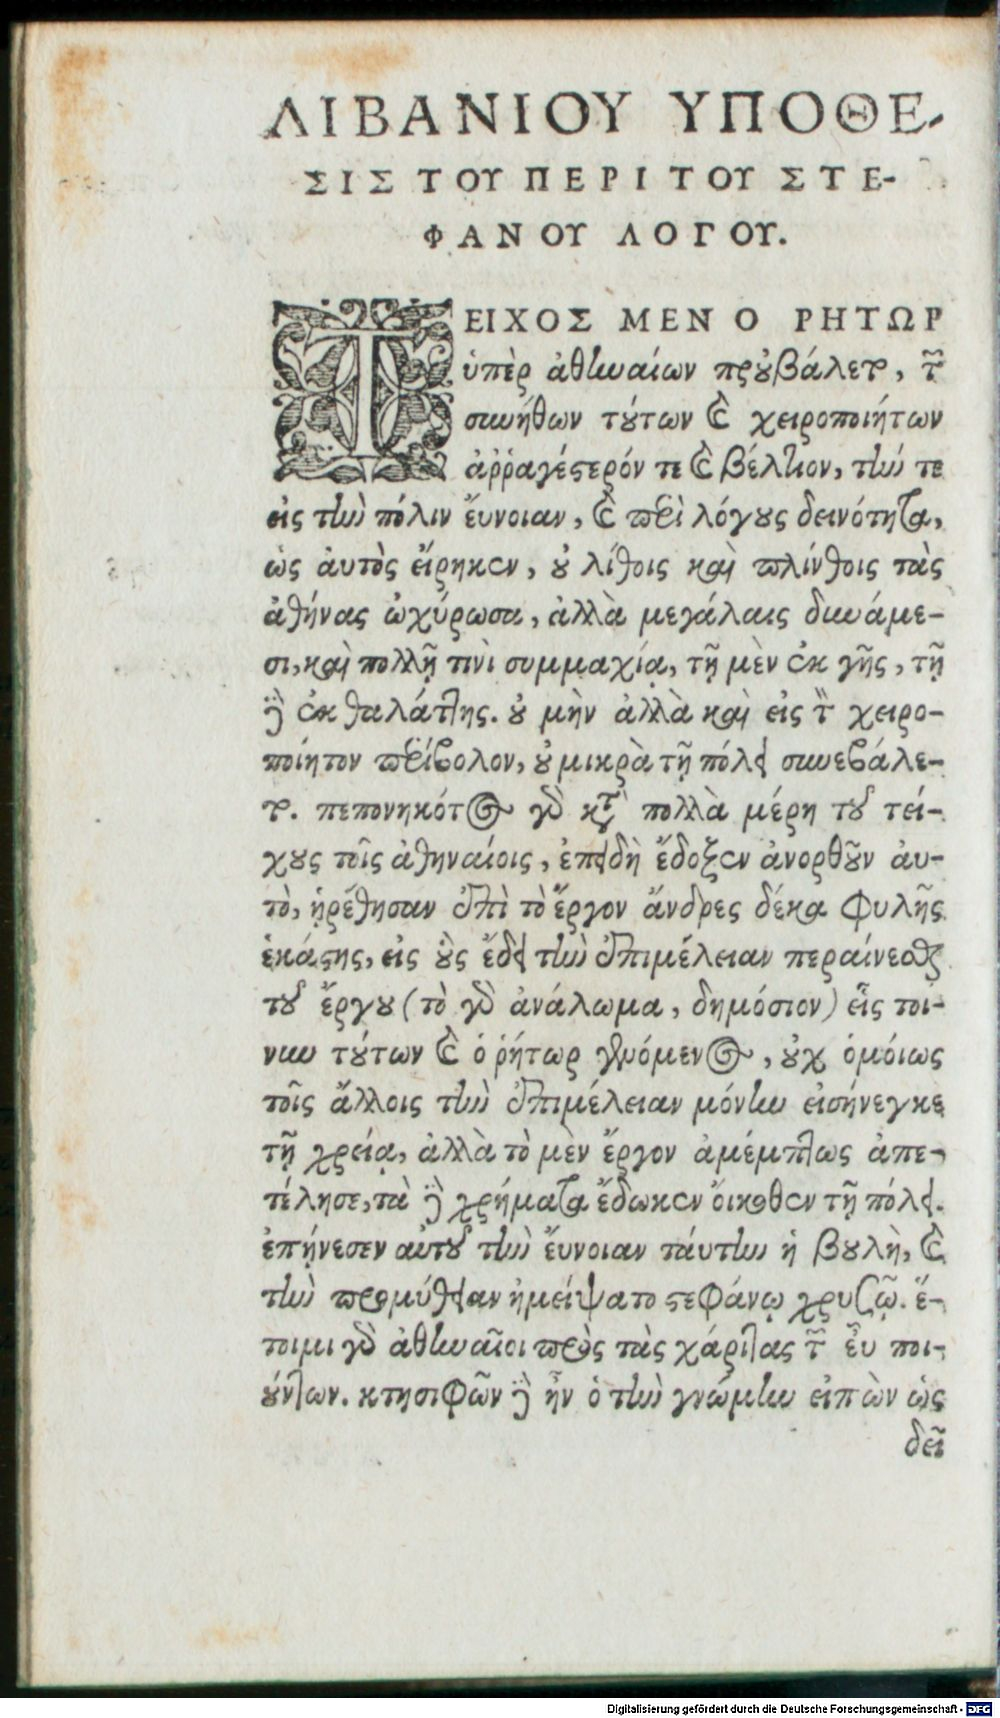 ΛΙΒΑΝΙΟΥ ΥΠΟΘΕ-
ΣΙΣ ΤΟΥ ΠΕΡΙ ΤΟΥ ΣΤΕ-
ΦΑΝΟΥ ΛΟΓΟΥ.
ΤΕΙΧΟΣ ΜΕΝ Ο ΡΗΤΩΡ
ὑπὲρ ἀθηναίων προὐβάλετο, τῶν
συνήθων τούτων καὶ χειροποιήτων
ἀῤῥαγέστερόν τε καὶ βέλτιον, τήν τε
εἰς τὴν πόλιν ἔυνοιαν, καὶ περὶ λόγους δεινότητα,
ὡς ἀυτὸς ἔιρηκεν, ὀυ λίθοις καὶ πλίνθοις τὰς
ἀθήνας ὠχύρωσα, ἀλλὰ μεγάλαις δυνάμε-
σι, καὶ πολλῇ τινὶ συμμαχίᾳ, τῇ μὲν ἐκ γῆς, τῇ
δὲ ἐκ θαλάττης. ὀυ μὴν ἀλλὰ καὶ εἰς τὸν χειρο-
ποίητον περίβολον, ὀυ μικρὰ τῇ πόλει συνεβάλε-
το. πεπονηκότος γὰρ κατὰ πολλὰ μέρη τοῦ τεί-
χους τοῖς ἀθηναίοις, ἐπειδὴ ἔδοξεν ἀνορθοῦν ἀυ-
τὸ, ᾑρέθησαν ἐπὶ τὸ ἔργον ἄνδρες δέκα φυλῆς
ἑκάστης, εἰς οὓς ἔδει τὴν ἐπιμέλειαν περαίνεσθαι
τοῦ ἔργου (τὸ γὰρ ἀνάλωμα, δημόσιον) εἷς τοί-
νυν τούτων καὶ ὁ ῥήτωρ γενόμενος, ὀυχ ὁμοίως
τοῖς ἄλλοις τὴν ἐπιμέλειαν μόνην εἰσήνεγκε
τῇ χρείᾳ, ἀλλὰ τὸ μὲν ἔργον ἀμέμπτως ἀπε-
τέλησε, τὰ δὲ χρήματα ἔδωκεν ὄικοθεν τῇ πόλει.
ἐπῄνεσεν αὐτοῦ τὴν ἔυνοιαν τάυτην ἡ βουλὴ, καὶ
τὴν προμύθειαν ἠμείψατο στεφάνῳ χρυσῷ. ἕ-
τοιμι γὰρ ἀθηναῖοι πρὸς τὰς χάριτας τῶν εὖ ποι-
ούντων. κτησιφῶν δὲ ἦν ὁ τὴν γνώμην εἰπὼν ὡς
δεῖ
Digitalisierung gefördert durch die Deutsche Forschungsgemeinschaft - DFG